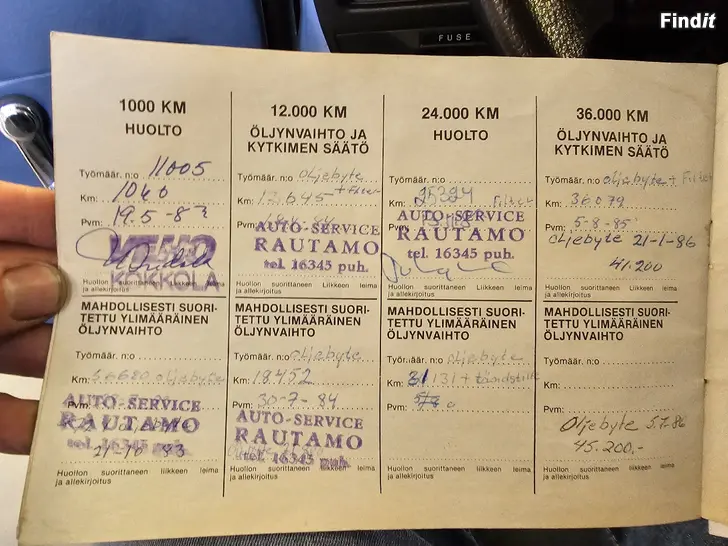 Findit
FUSE
1000 KM
HUOLTO
Työmäär. n:o 11005
Km: 1040
Pvm: 19.5-83
VEHO
KOKKOLA
Huollon suorittaneen liikkeen leima
ja allekirjoitus
MAHDOLLISESTI SUORI-
TETTU YLIMÄÄRÄINEN
ÖLJYNVAIHTO
Työmäär. n:o
Km: oljebyte
Pvm:
AUTO-SERVICE
RAUTAMO
tel. 16345 puh.
21-10 83
Huollon suorittaneen liikkeen leima
ja allekirjoitus
12.000 KM
ÖLJYNVAIHTO JA
KYTKIMEN SÄÄTÖ
Työmäär. n:o oljebyte
+ Filter
Km: 12645
Pvm:
AUTO-SERVICE
RAUTAMO
tel. 16345 puh.
Huollon suorittaneen liikkeen leima
ja allekirjoitus
MAHDOLLISESTI SUORI-
TETTU YLIMÄÄRÄINEN
ÖLJYNVAIHTO
Työmäär. n:o oljebyte
Km: 18452
Pvm: 30-7-84
AUTO-SERVICE
RAUTAMO
tel. 16345 puh.
Huollon suorittaneen liikkeen leima
ja allekirjoitus
24.000 KM
HUOLTO
Työmäär. n:o
Km: 25394 Filter
Pvm:
AUTO-SERVICE
RAUTAMO
tel. 16345 puh.
Huollon suorittaneen liikkeen leima
ja allekirjoitus
MAHDOLLISESTI SUORI-
TETTU YLIMÄÄRÄINEN
ÖLJYNVAIHTO
Työmäär. n:o oljebyte
Km: 31131 + tändstift
Pvm:
Huollon suorittaneen liikkeen leima
ja allekirjoitus
36.000 KM
ÖLJYNVAIHTO JA
KYTKIMEN SÄÄTÖ
Työmäär. n:o oljebyte + Filter
Km: 36079
Pvm: 5-8-85
oljebyte 21-1-86
41.200
Huollon suorittaneen liikkeen leima
ja allekirjoitus
MAHDOLLISESTI SUORI-
TETTU YLIMÄÄRÄINEN
ÖLJYNVAIHTO
Työmäär. n:o
Km:
Pvm:
Oljebyte 5.7.86
45.200.-
Huollon suorittaneen liikkeen leima
ja allekirjoitus